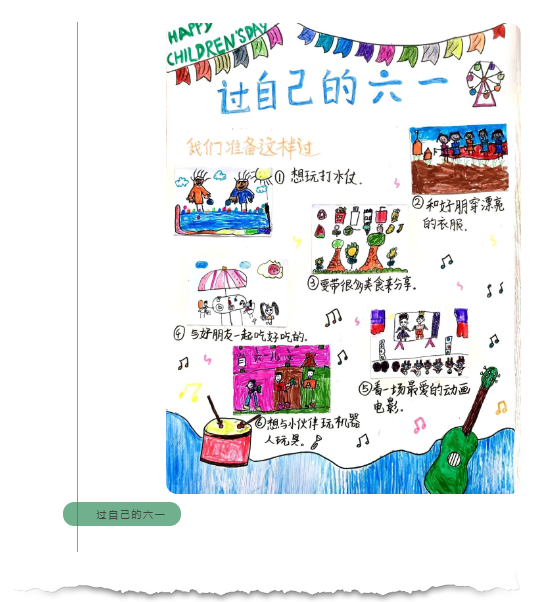 HAPPY
CHILDREN'S DAY
过自己的六一
我们准备这样过
① 想玩打水仗.
② 和好朋穿漂亮
的衣服.
③ 要带很多美食来分享.
④ 与好朋友一起吃好吃的.
⑤ 看一场最爱的动画
电影.
六一儿
⑥ 想与小伙伴玩机器
人玩具.
过自己的六一